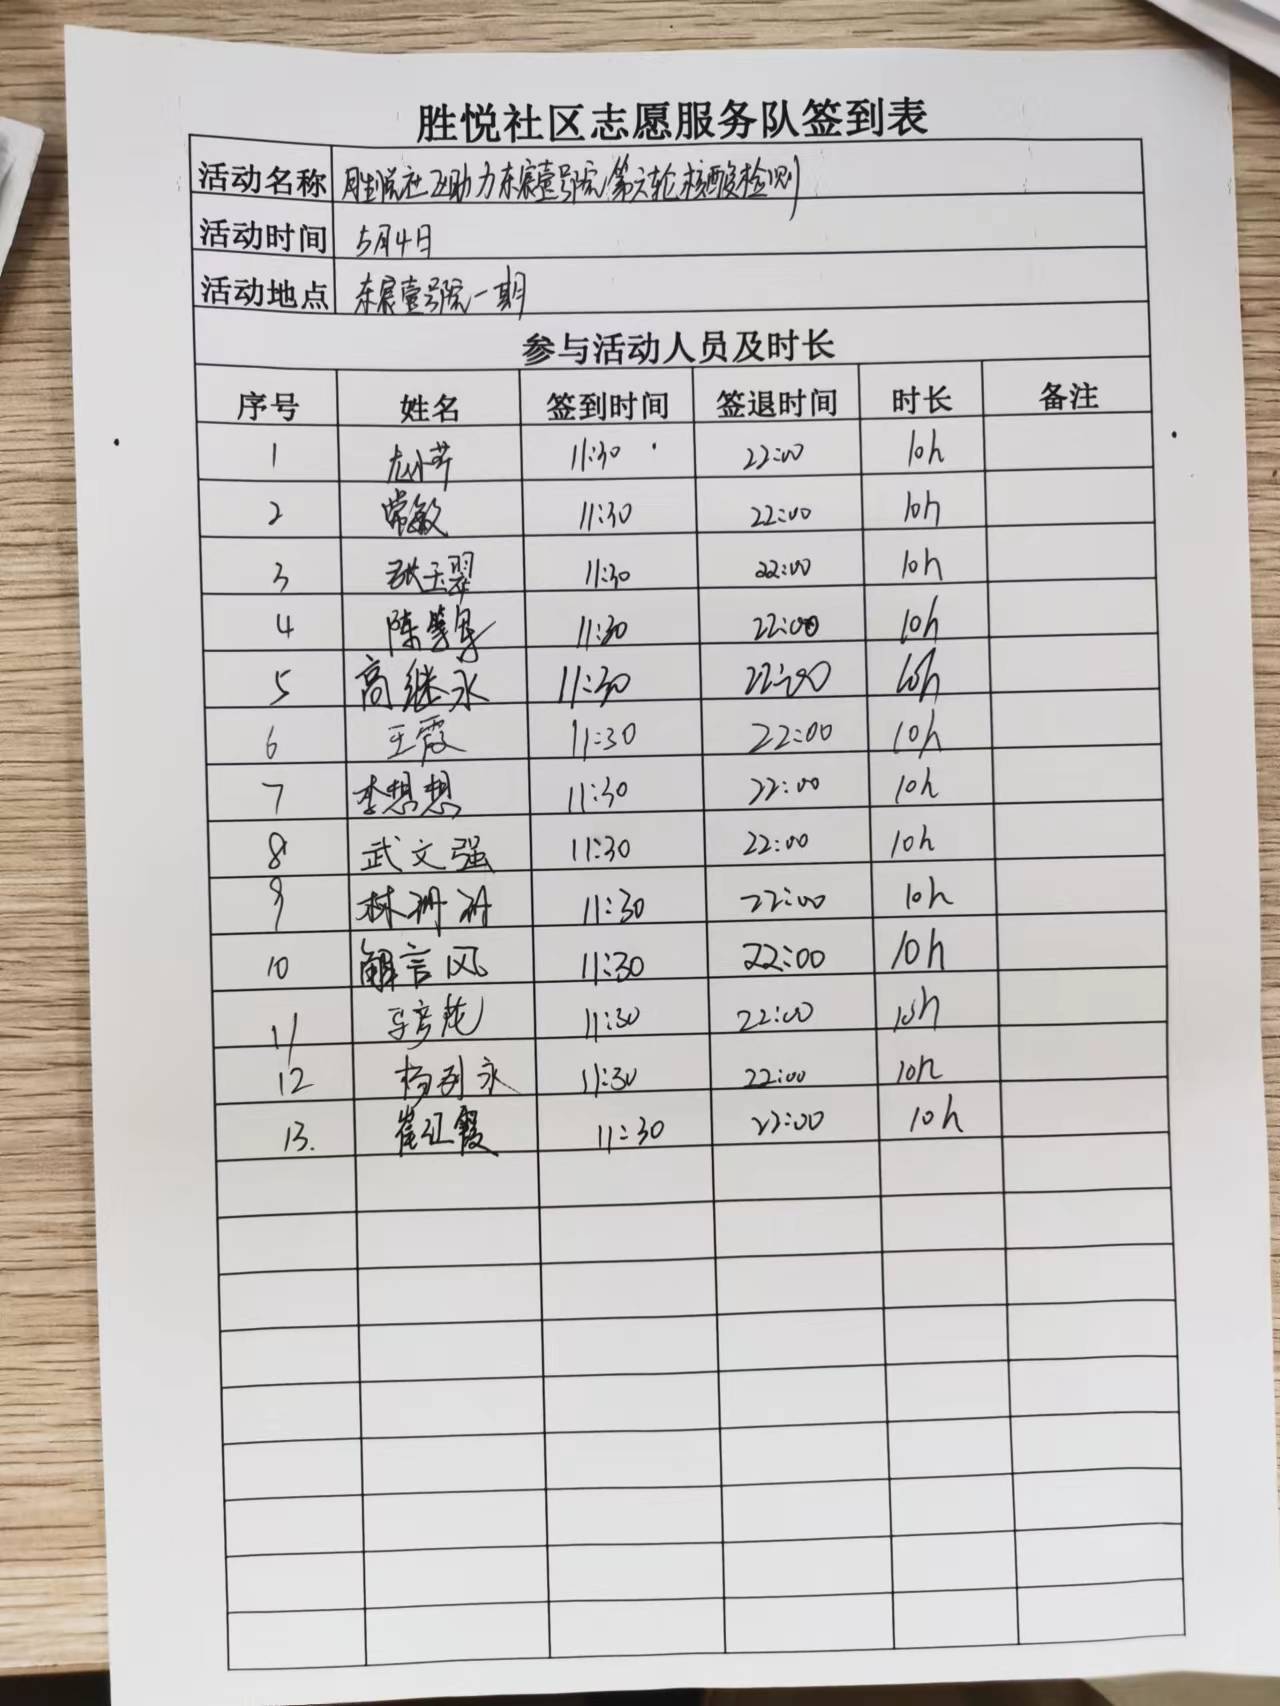 胜悦社区志愿服务队签到表
活动名称 胜悦社区助力东宸壹号院第六轮核酸检测
活动时间 5月4日
活动地点 东宸壹号院一期
参与活动人员及时长
序号 姓名 签到时间 签退时间 时长 备注
1 11:30 22:00 10h
2 常敏 11:30 22:00 10h
3 张玉翠 11:30 22:00 10h
4 陈 11:30 22:00 10h
5 高继永 11:30 22:00 10h
6 王霞 11:30 22:00 10h
7 李想想 11:30 22:00 10h
8 武文强 11:30 22:00 10h
9 林珊珊 11:30 22:00 10h
10 解言风 11:30 22:00 10h
11 11:30 22:00 10h
12 杨 永 11:30 22:00 10h
13. 崔红霞 11:30 22:00 10h